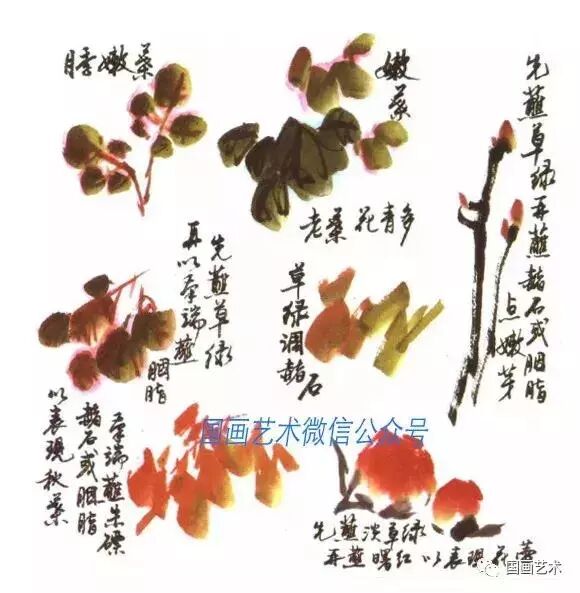 月季嫩葉
嫩葉
老葉花青多
先蘸草绿再蘸赭石或胭脂
点嫩芽
先蘸草绿
再以笔端蘸
胭脂
草绿调赭石
笔端蘸朱磦
赭石或胭脂
以表现秋葉
国画艺术微信公众号
先蘸淡草绿
再蘸曙红以表现花蕾
国画艺术